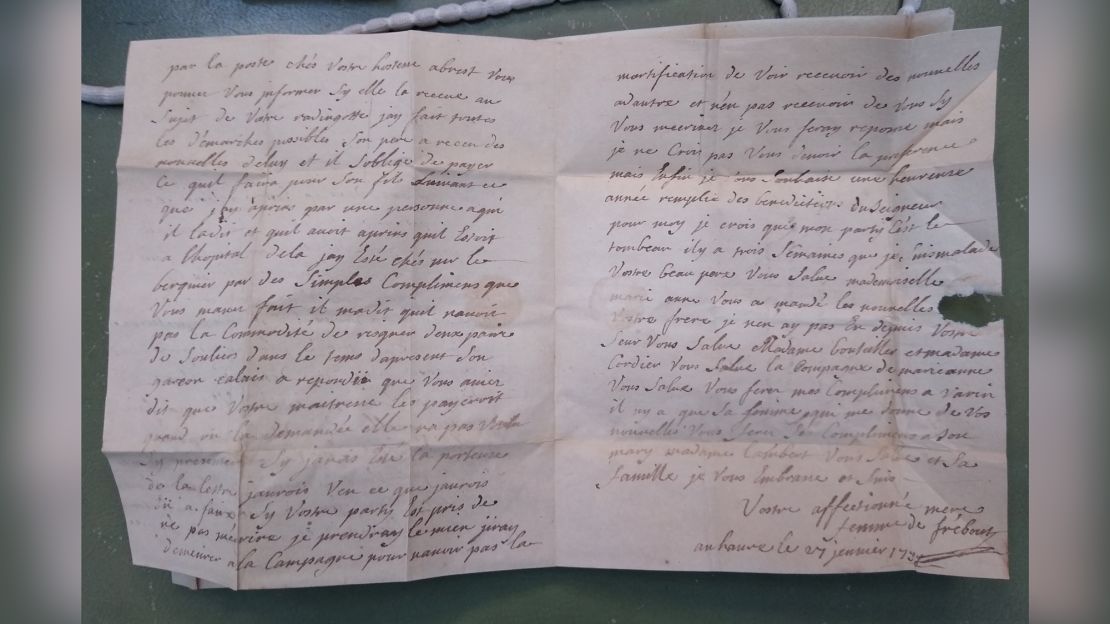 par la poste chés Vostre hostesse abrest vous
pouvez Vous informer Sy elle la recue au
Sujet de Votre radingotte jay fait toutes
les démarches posibles Son pere a receu des
nouvelles deluy et il S'oblige de payer
Ce quil faira pour Son fils Suivant ce
que jay apris par une personne aqui
il ladit et quil avoit apris quil Estoit
a lhopital dela jay Esté chés mr le
berquier par des Simples Complimens que
Vous mavez fait il madit quil navoit
pas la Commodité de risquer deux paire
de Souliers dans le tems dapresent Son
garçon calais a repondu que Vous aviez
dit que Vostre maitresse les payeroit
quand on la demandée elle na pas
Sy presenter Sy javois Esté la porteuse
de la lettre jaurois Veu ce que jaurois
a faire Sy Vostre party Est pris de
ne pas mécrire je prendray le mien jiray
demeurer a la Campagne pour navoir pas la
mortification de Voir recevoir des nouvelles
adautre et nen pas recevoir de Vous Sy
Vous mecrivez je Vous feray reponse mais
je ne Crois pas Vous devoir la preference
mais Enfin je vous Souhaite une heureuse
année remplie des benedictions du Seigneur
pour moy je crois que mon party Est le
tombeau il y a trois Semaines que je malade
Vostre beau pere Vous Salue mademoiselle
marie anne Vous a mandé les nouvelles
Vostre frere je nen ay pas Eu depuis Vostre
Seur Vous Salue Madame bouteiller et madame
Cordier Vous Salue la Compagne de marieanne
Vous Salue Vous ferez mes Complimens a Varin
il ny a que Sa femme qui me donne de Vos
nouvelles Vous ferez Ses Complimens a Son
mary madame Lambert Vous Salue et Sa
famille je Vous Embrasse et Suis
Vostre affectionné mere
femme de frébourg
au havre le 27 jenvier